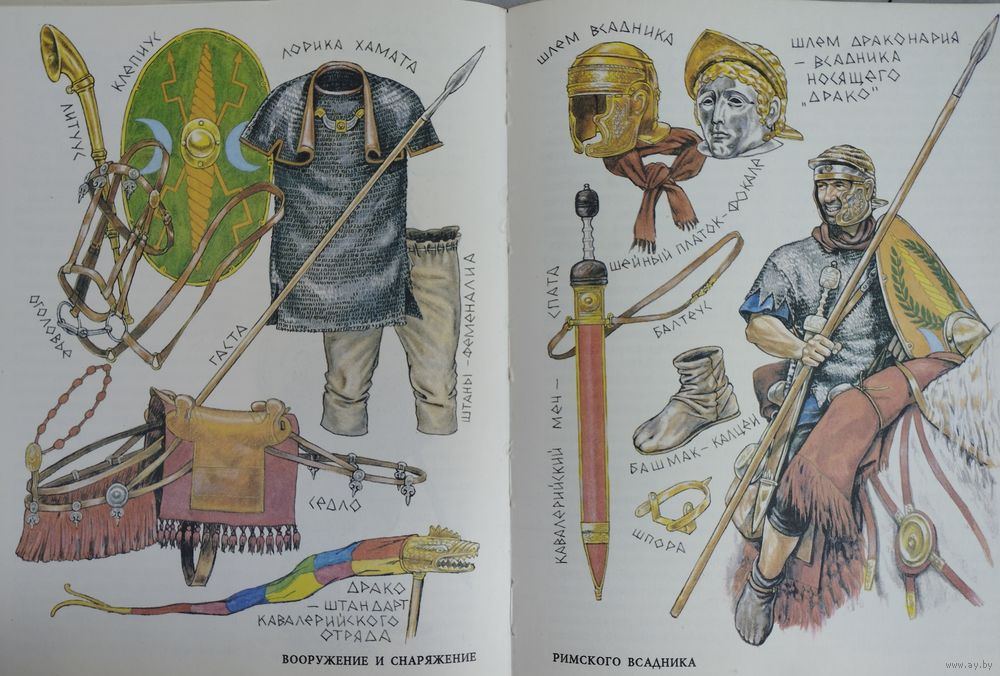 ЛИТУУС
КЛЕПИУС
ЛОРИКА ХАМАТА
ОГОЛОВЬЕ
ГАСТА
ШТАНЫ-ФЕМЕНАЛИА
СЕДЛО
ДРАКО
— ШТАНДАРТ
КАВАЛЕРИЙСКОГО
ОТРЯДА
ВООРУЖЕНИЕ И СНАРЯЖЕНИЕ
ШЛЕМ ВСАДНИКА
ШЛЕМ ДРАКОНАРИЯ
— ВСАДНИКА
НОСЯЩЕГО
„ДРАКО"
ШЕЙНЫЙ ПЛАТОК-ФОКАЛЕ
БАЛТЕУС
КАВАЛЕРИЙСКИЙ МЕЧ — СПАТА
БАШМАК-КАЛЦЕИ
ШПОРА
РИМСКОГО ВСАДНИКА
www.ay.by